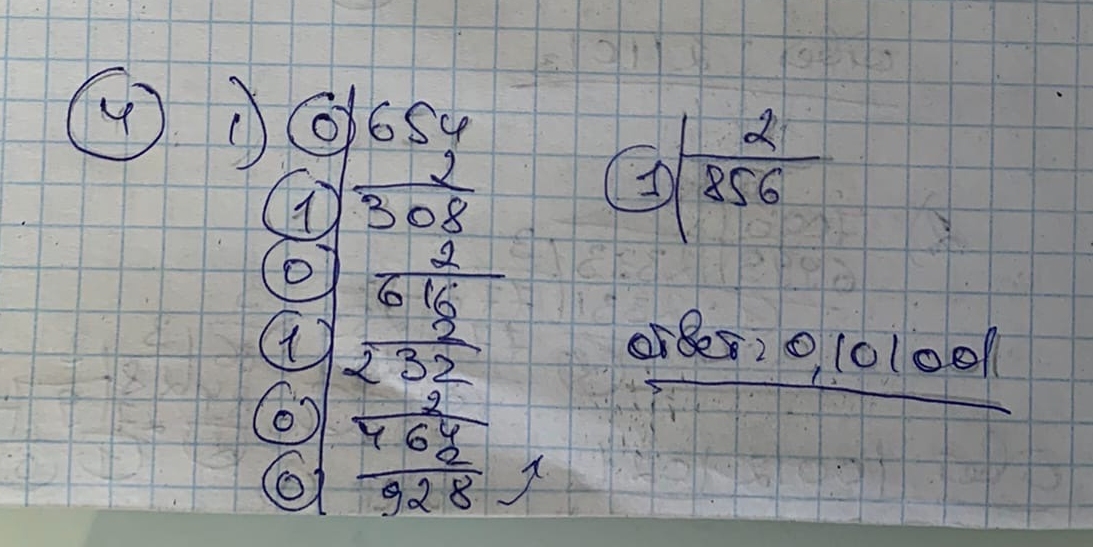 4 1) 0 654
2
1 308
2
0 616
2
1 232
2
0 464
2
0 928
2
1 856
ответ: 0,101001